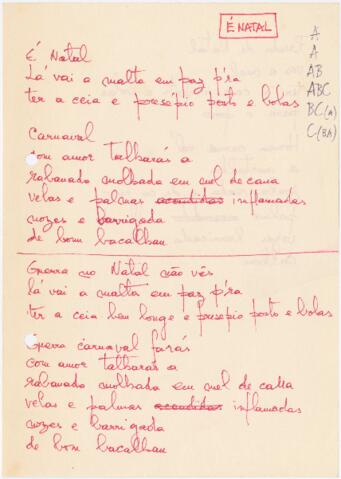 É NATAL
A
A
AB
ABC
BC(A)
C(BA)
É Natal
Lá vai a malta em paz p'ra
ter a ceia e presépio posto e bolas
Carnaval
com amor talharás a
rabanada molhada em mel de cana
velas e palmas acendidas inflamadas
nozes e barrigada
de bom bacalhau
Guerra no Natal não vês
lá vai a malta em paz p'ra
ter a ceia bem longe e presepio posto e bolas
Guerra carnaval farás
com amor talharás a
rabanada molhada em mel de cana
velas e palmas acendidas inflamadas
nozes e barrigada
de bom bacalhau